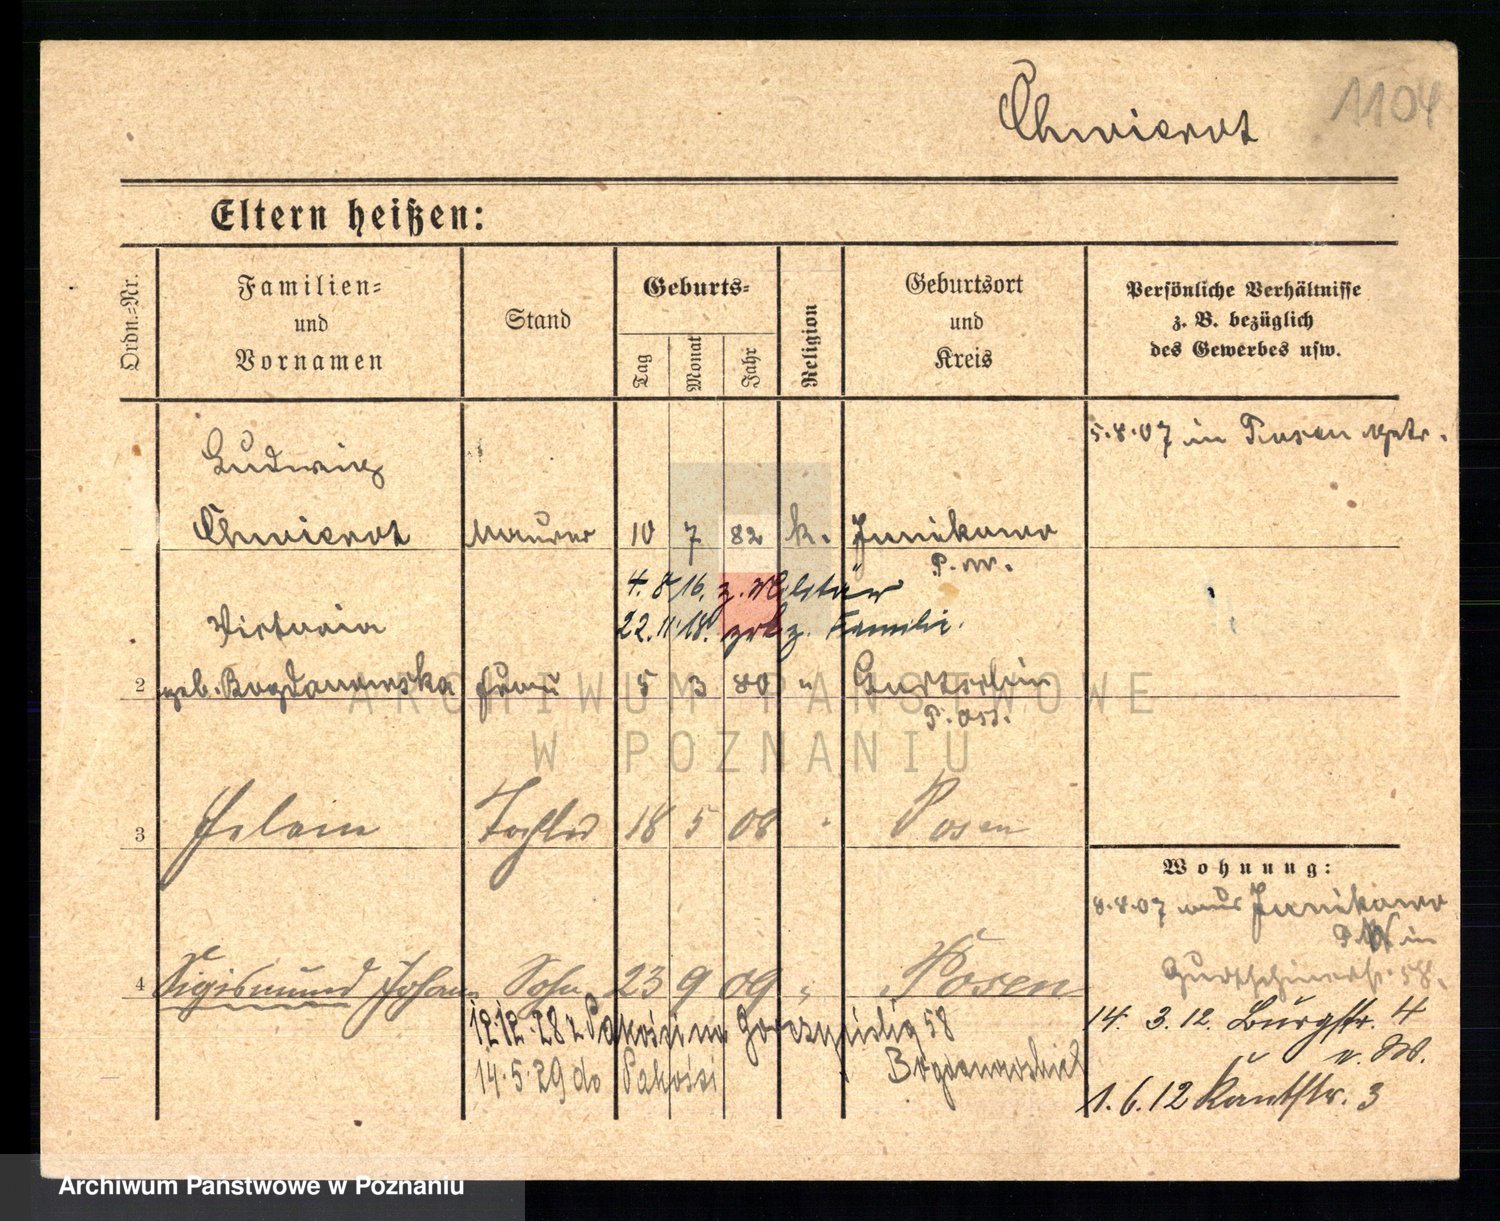 Chwierot
1104
Eltern heißen:
Ordn.-Nr.
Familien-
und
Vornamen
Stand
Geburts-
Tag
Monat
Jahr
Religion
Geburtsort
und
Kreis
Persönliche Verhältnisse
z. B. bezüglich
des Gewerbes usw.
5.8.07 in Posen getr.
Ludwig
Chwierot Maurer 10 7 82 k. Junikowo
P. W.
4. 8 16. z. Militär
22. 11 18. z. Familie.
Victoria
2 geb. Bogdanowska Frau 5 3 80 "
P. Ost.
3 Helene Tochter 18 5 08 Posen
Wohnung:
8.8.07 aus Junikowo
P. W in
58.
4 Sigismund Johann Sohn 23 9 09 " Posen
12.12.28 z Pakosi na 58
14.5.29 do Pakosi
14. 3.12. Burgstr. 4
v. W.
1.6.12 Kantstr. 3
ARCHIWUM PAŃSTWOWE
W POZNANIU
Archiwum Państwowe w Poznaniu